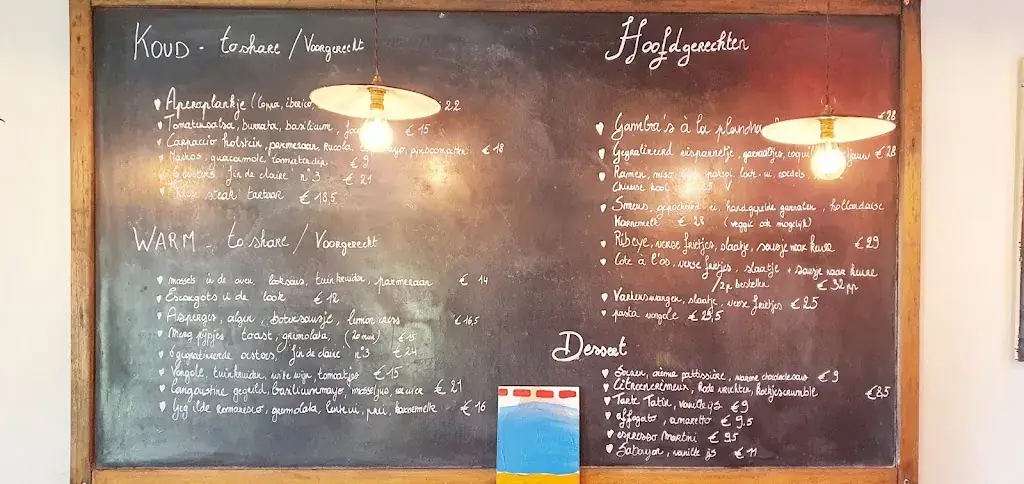 KOUD - to share / Voorgerecht
Aperoplankje (Coppa, iberico, 22
Tomatensalsa, burrata, basilicum, € 15
Carpaccio holstein, parmezaan, rucola, pijnboompitten € 18
Nachos, guacamole, tomatendip € 9
oesters, fin de claire n°3 € 21
steak tartaar € 18,5
WARM - to share / Voorgerecht
mossels in de oven, looksaus, tuinkruiden, parmezaan € 14
Escargots in de look € 12
Asperges, algen, botersausje, lemon cress € 16,5
Mergpijpjes toast, gremolata, (20 min) € 15
gegratineerde oesters, fin de claire n°3 € 24
Vongole, tuinkruiden, witte wijn, tomaatjes € 15
Langoustine gegrild, basilicummayo, € 21
Gegrilde romanesco, gremolata, prei, € 16
Hoofdgerechten
Gamba's à la plancha € 28
Gegratineerd vispannetje, garnaaltjes, € 28
Ramen, miso, paksoi, noedels
Chinese kool V
Smeus, gepocheerd ei, handgepelde garnalen, hollandaise
Karnemelk € 28 (veggie ook mogelijk)
Ribeye, verse frietjes, slaatje, sausje naar keuze € 29
Côte à l'os, verse frietjes, slaatje + sausje naar keuze
/2p bestellen € 32 pp
Varkenswangen, slaatje, verse frietjes € 25
pasta vongole € 25,5
Dessert
Soesen, crème patissière, warme chocoladesaus € 9
Citroencrémeux, Rode vruchten, koekjescrumble € 8,5
Tarte Tatin, vanille ijs € 9
affogato, amaretto € 9,5
espresso Martini € 9,5
Sabayon, vanille ijs € 11